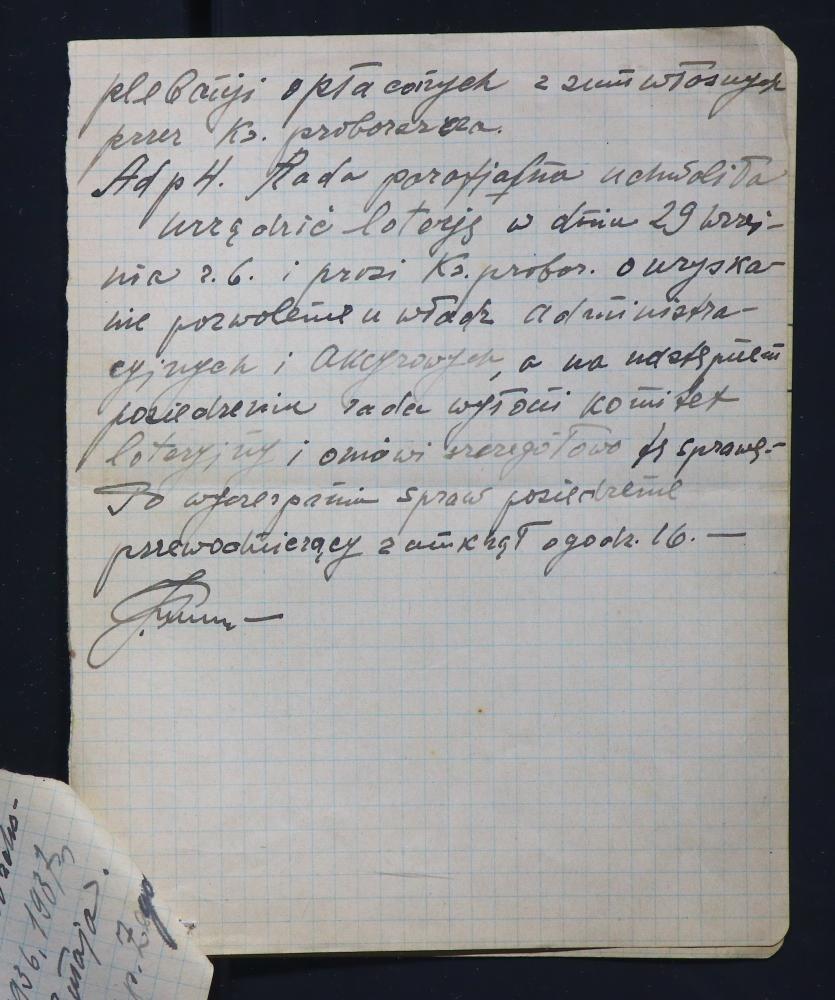 plebanji opłaconych z sum własnych
przez Ks. proboszcza.
Ad p 4. Rada parafjalna uchwaliła
urządzić loterję w dniu 29 wrześ-
nia r. b. i prosi Ks. probor. o uzyska-
nie pozwolenie u władz administra-
cyjnych i Akcyzowych, a na następnem
posiedzeniu rada wyłoni komitet
loteryjny i omówi szczegółowo tę sprawę.-
Po wyczerpaniu spraw posiedzenie
przewodniczący zamknął o godz. 16. —
936, 1937
maja
p. Zago